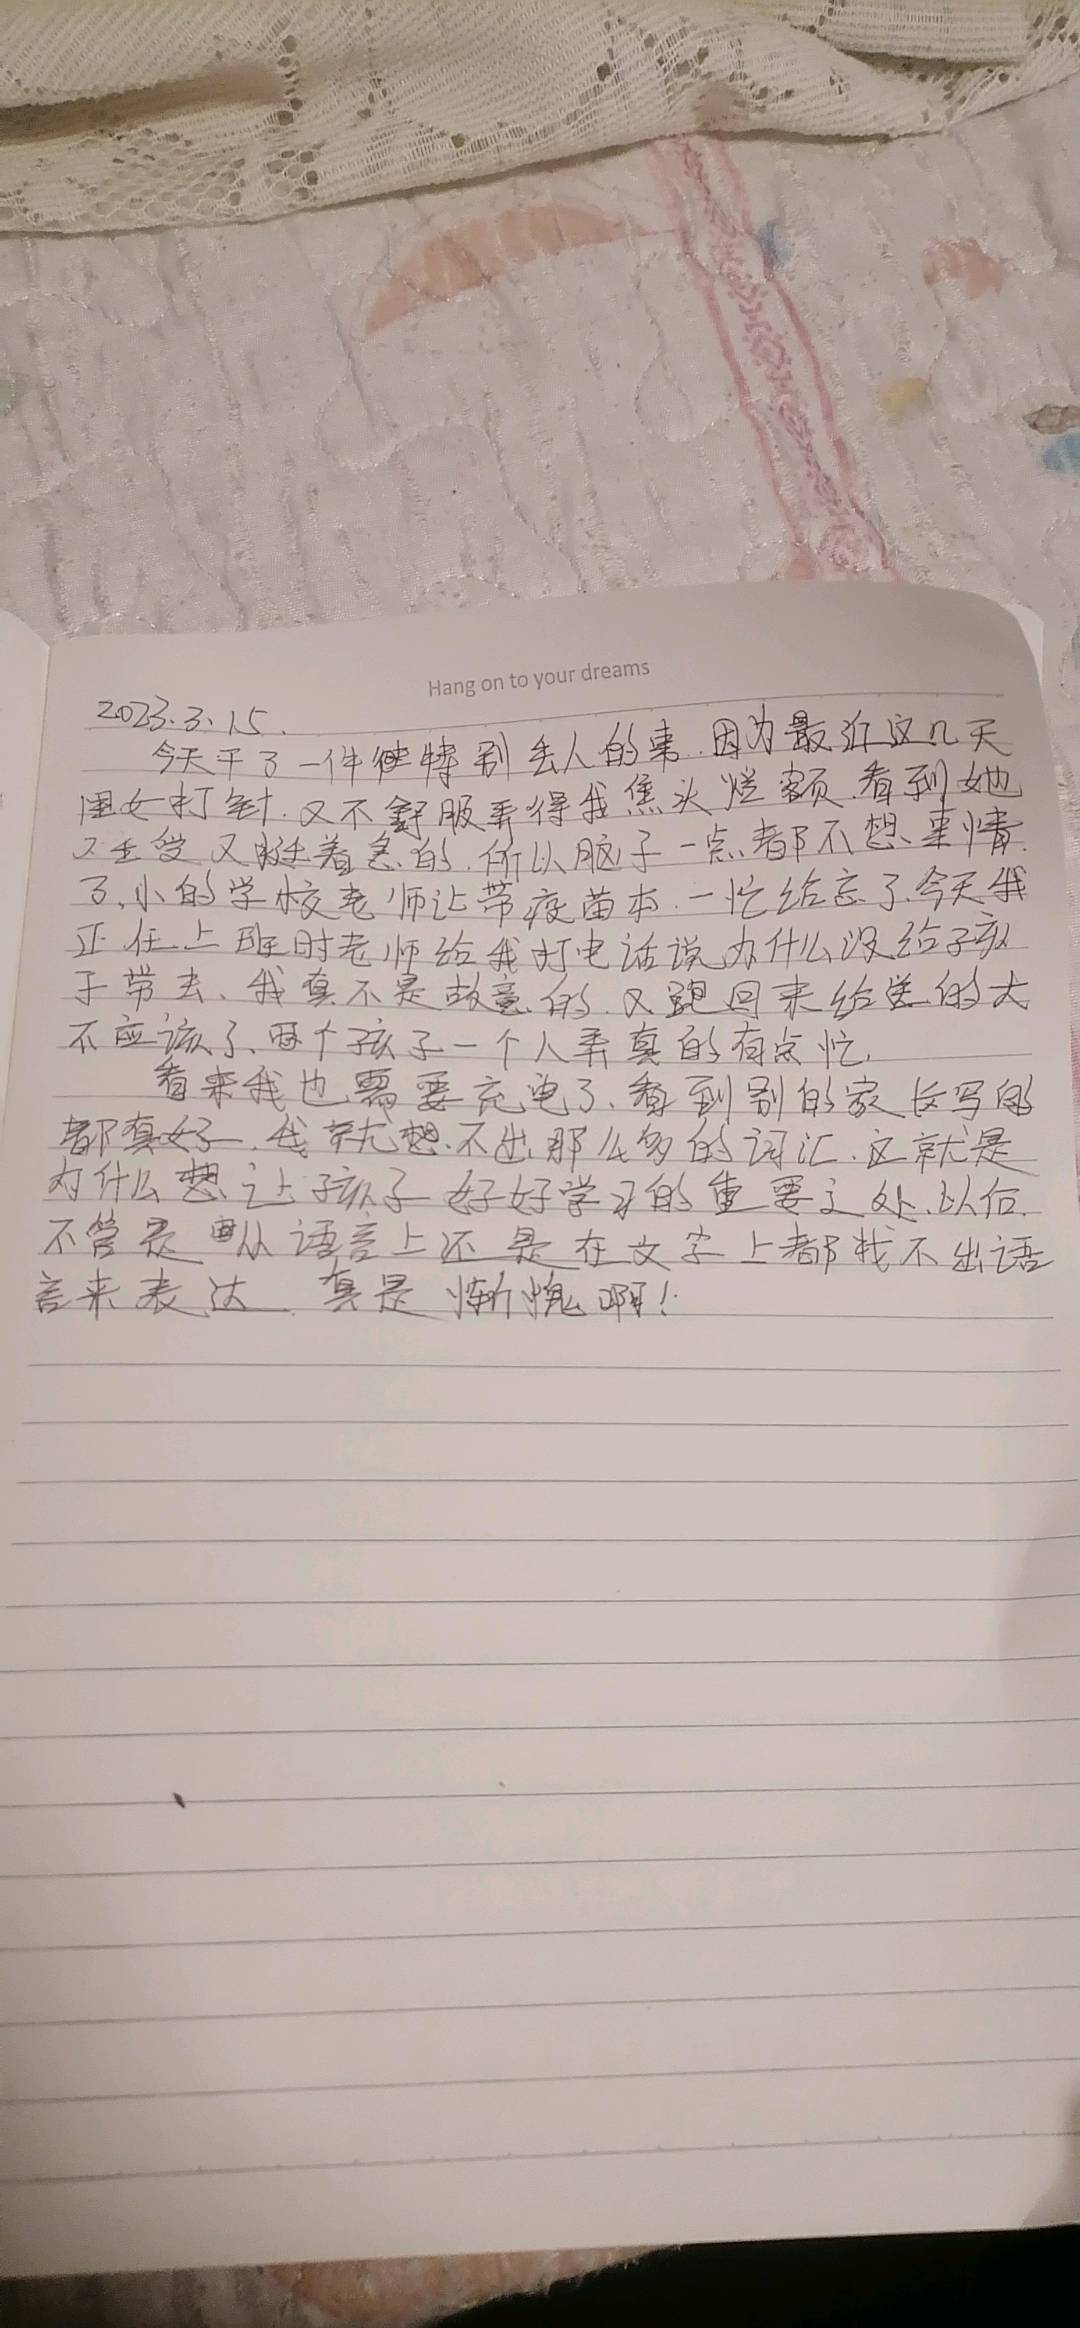 Hang on to your dreams
2023.3.15.
今天干了一件特别丢人的事.因为最近这几天
闺女打针.又不舒服弄得我焦头烂额.看到她
又挺着急的.所以脑子一点都不想事情.
了、小的学校老师让带疫苗本.一忙给忘了.今天我
正在上班时老师给我打电话说为什么没给孩
子带去、我真不是故意的.又跑回来给送的太
不应该了、两个孩子一个人弄真的有点忙.
看来我也需要充电了、看到别的家长写的
都真好.我就想不出那么多的词汇.这就是
为什么想让孩子好好学习的重要之处.以后.
不管是从语言上还是在文字上都找不出语
言来表达.真是惭愧啊!